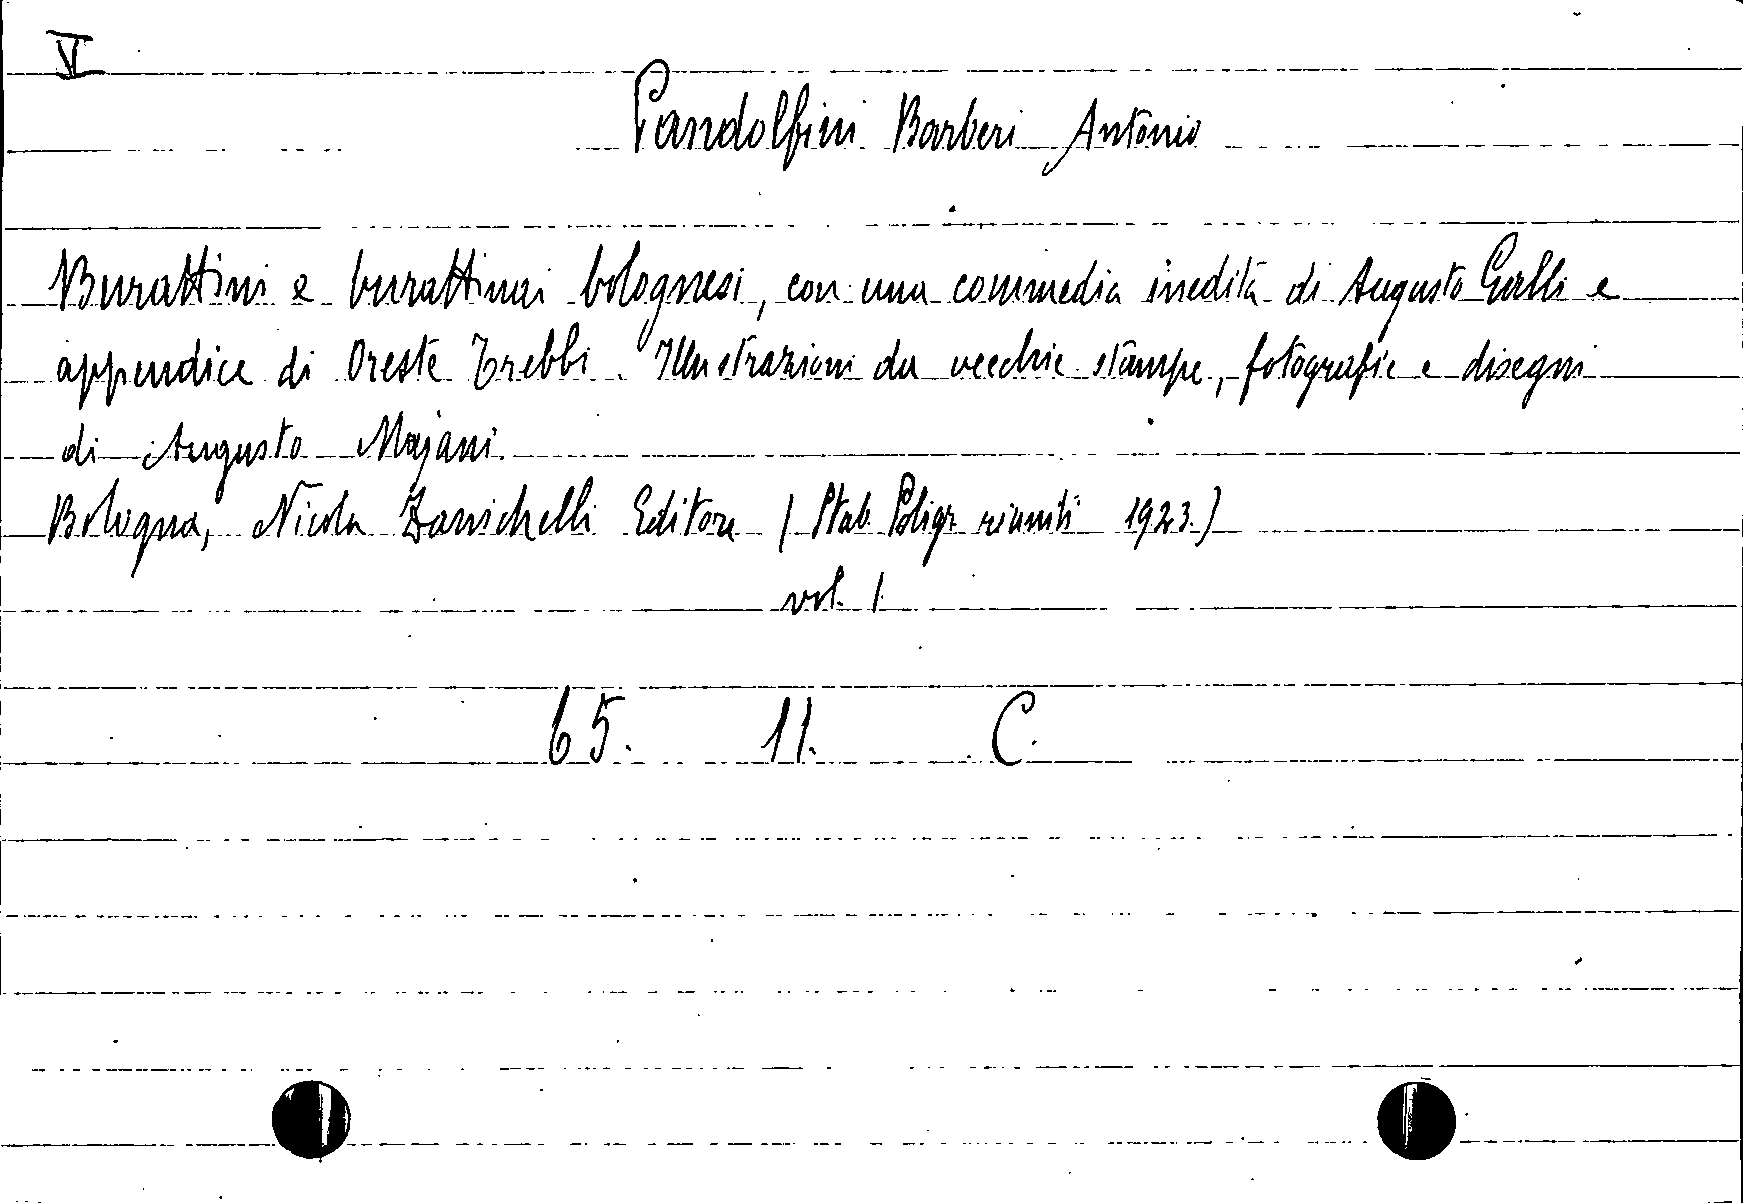 V
Pandolfini Barberi Antonio
Burattini e burattinai bolognesi, con una commedia inedita di Augusto Galli e
appendice di Oreste Trebbi. Illustrazioni da vecchie stampe, fotografie e disegni
di Augusto Majani.
Bologna, Nicola Zanichelli Editore (Stab. Poligr. riuniti 1923.)
vol. 1.
65. 11. C.